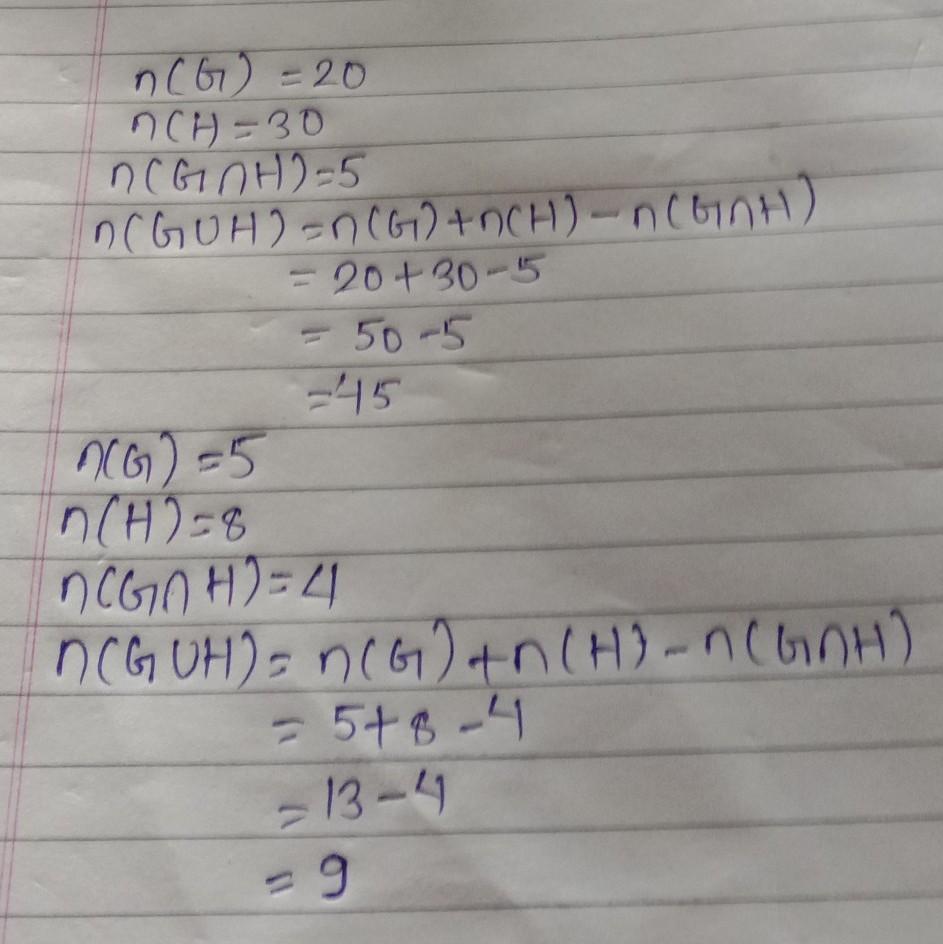 n(G) = 20
n(H = 30
n(G∩H) = 5
n(G∪H) = n(G) + n(H) - n(G∩H)
= 20 + 30 - 5
= 50 - 5
= 45
n(G) = 5
n(H) = 8
n(G∩H) = 4
n(G∪H) = n(G) + n(H) - n(G∩H)
= 5 + 8 - 4
= 13 - 4
= 9